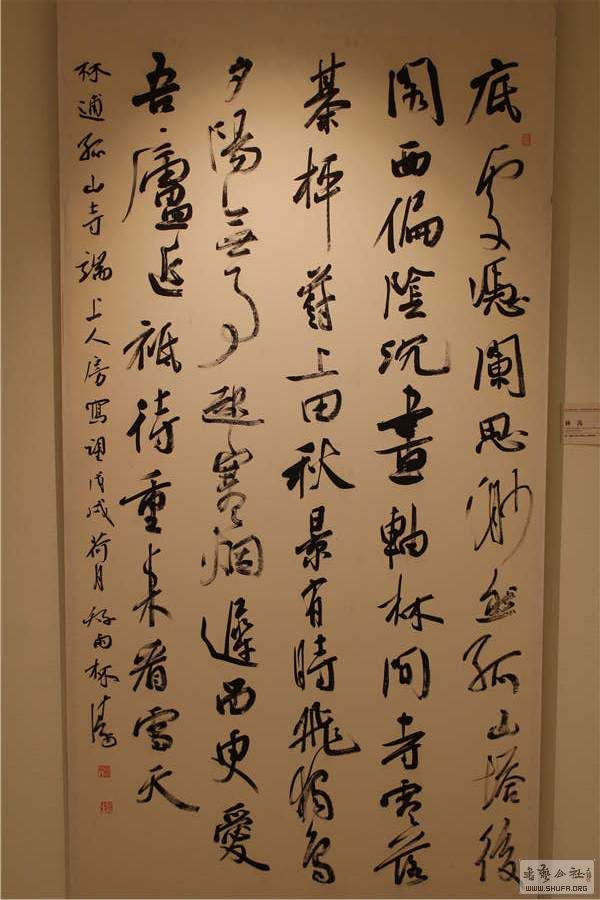 底處憑闌思眇然孤山塔後
閣西偏陰沉畫軸林間寺零落
棊枰葑上田秋景有時飛獨鳥
夕陽無事起寒烟遲留更愛
吾廬近祗待重來看雪天
林逋孤山寺端上人房寫望戊戌荷月林
書藝公社
WWW.SHUFA.ORG